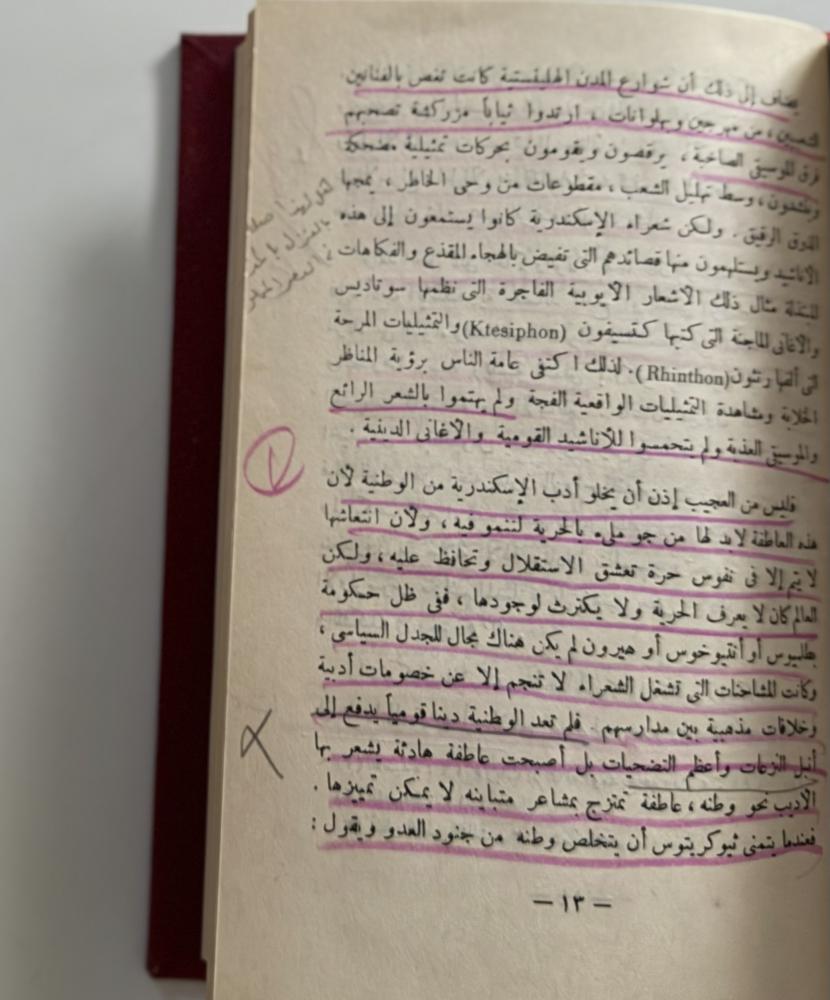 يضاف إلى ذلك أن شوارع المدن الهلينستية كانت تغص بالفنانين
الشعبيين، من مهرجين وبهلوانات، ارتدوا ثياباً مزركشة تصحبهم
فرق الموسيقى الصاخبة، يرقصون ويقومون بحركات تمثيلية مضحكة
وينشدون، وسط تهليل الشعب، مقطوعات من وحى الخاطر، يمجها
الذوق الرقيق. ولكن شعراء الإسكندرية كانوا يستمعون إلى هذه
الأناشيد ويستلهمون منها قصائدهم التى تفيض بالهجاء المقذع والفكاهات
المبتذلة مثال ذلك الأشعار الأيوبية الفاجرة التى نظمها سوتاديس
والأغانى الماجنة التى كتبها كتسيفون (Ktesiphon) والتمثيليات المرحة
التى ألفها رنثون (Rhinthon). لذلك اكتفى عامة الناس برؤية المناظر
الخلابة ومشاهدة التمثيليات الواقعية الفجة ولم يهتموا بالشعر الرائع
والموسيقى العذبة ولم يتحمسوا للأناشيد القومية والأغانى الدينية.
فليس من العجيب إذن أن يخلو أدب الإسكندرية من الوطنية لأن
هذه العاطفة لابد لها من جو ملىء بالحرية لتنمو فيه، ولأن انتعاشها
لا يتم إلا فى نفوس حرة تعشق الاستقلال وتحافظ عليه، ولكن
العالم كان لا يعرف الحرية ولا يكترث لوجودها، ففى ظل حكومة
بطليوس أو أنتيوخوس أو هيرون لم يكن هناك مجال للجدل السياسى،
وكانت المشاحنات التى تشغل الشعراء لا تنجم إلا عن خصومات أدبية
وخلافات مذهبية بين مدارسهم. فلم تعد الوطنية دينا قومياً يدفع إلى
أنبل النزعات وأعظم التضحيات بل أصبحت عاطفة هادئة يشعر بها
الأديب نحو وطنه، عاطفة تمتزج بمشاعر متباينه لا يمكن تمييزها.
فعندما يتمنى ثيوكريتوس أن يتخلص وطنه من جنود العدو ويقول:
— ١٣ —